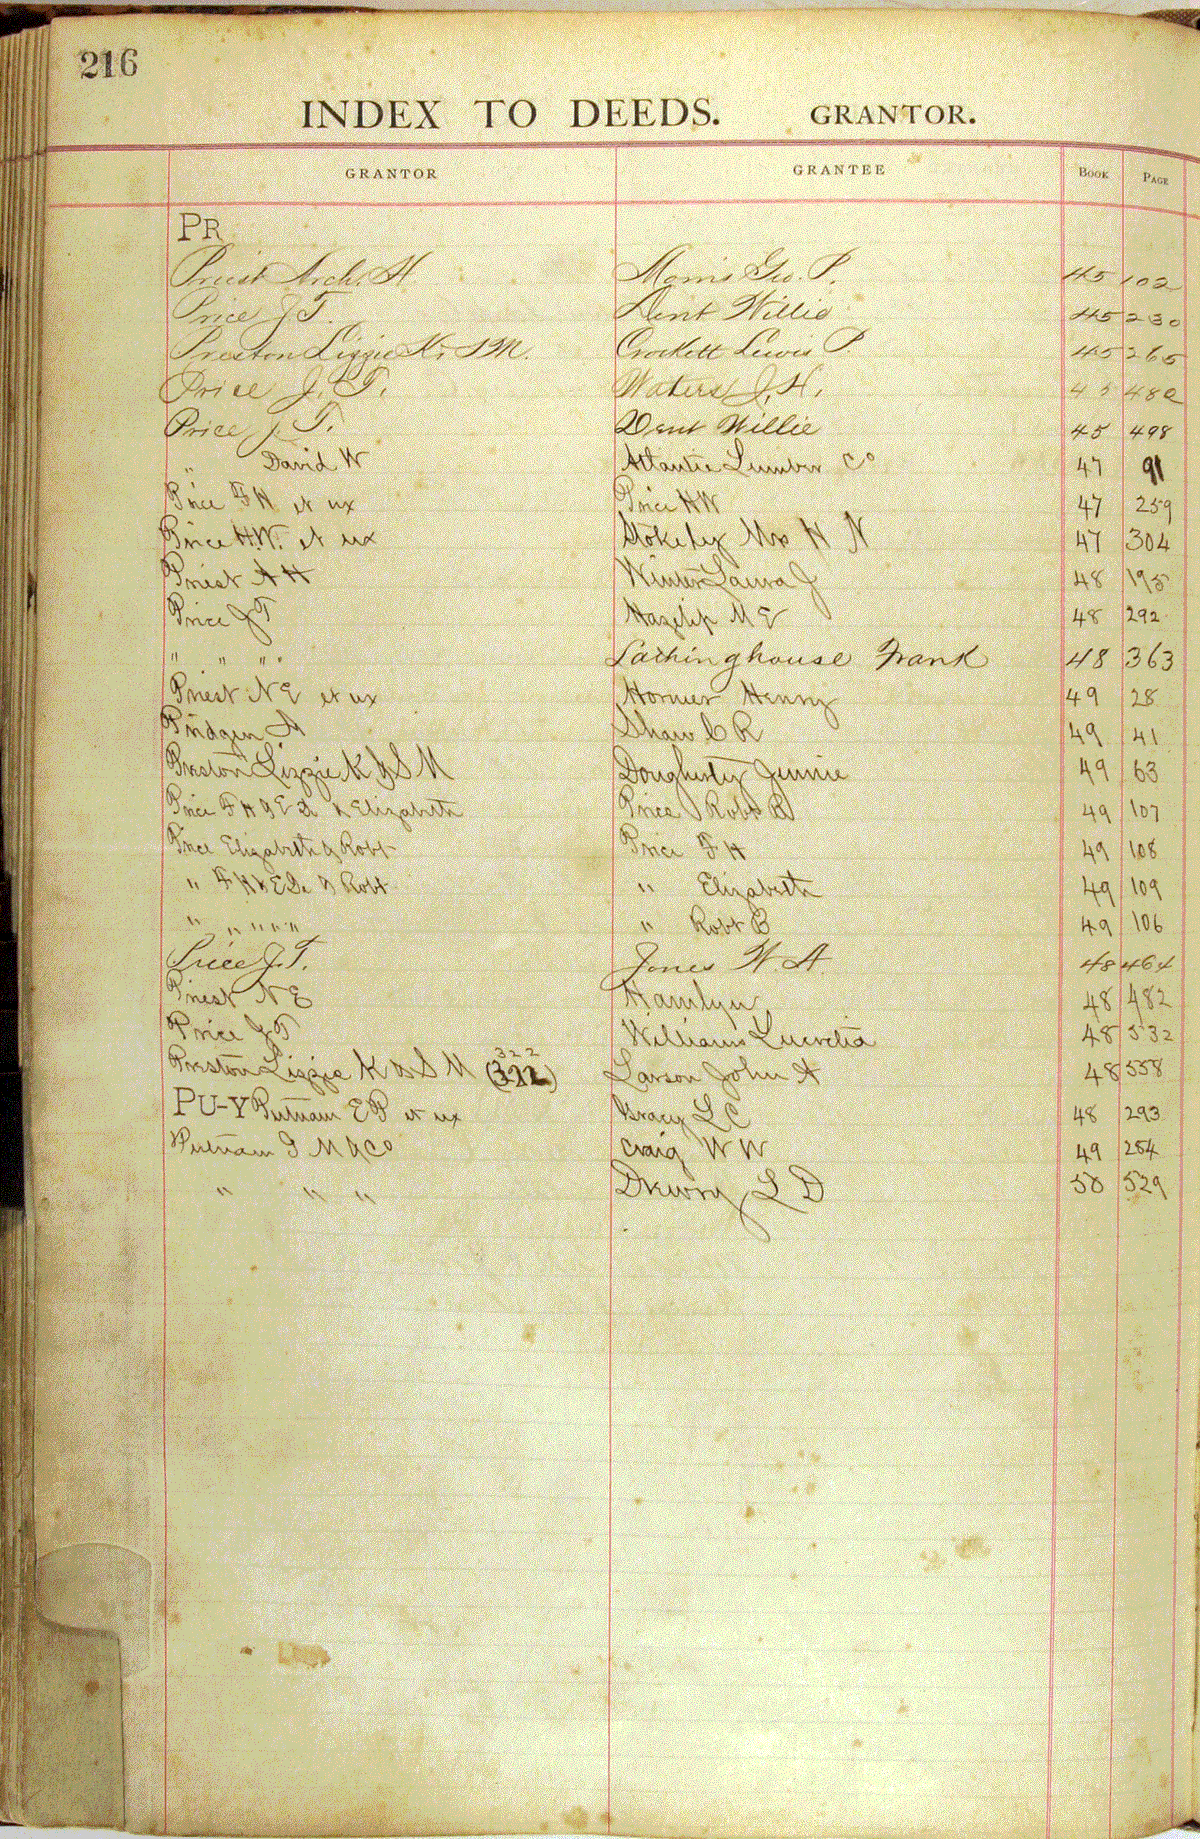 216
INDEX TO DEEDS. GRANTOR.
GRANTOR GRANTEE BOOK PAGE
PR
Priest Arch. H. Morris Geo. P. 45 102
Price J T. Dent Willie 45 230
Preston Lizzie K. & S M. Crockett Lewis P. 45 265
Price J. T. Waters J. H. 45 482
Price J. T. Dent Willie 45 498
" David W Atlantic Lumber Co 47 91
Price F H et ux Price H W 47 259
Price H. W. et ux Stokeley Mrs H N 47 304
Priest A H Winter Laura J 48 195
Price J T Hazelip M E 48 292
" " " " Lathinghouse Frank 48 363
Priest N E et ux Horner Henry 49 28
Pridgen A Shaw C R 49 41
Preston Lizzie K & S M Dougherty Jennie 49 63
Price F H & E & Elizabeth Price Robt B 49 107
Price Elizabeth & Robt Price F H 49 108
" F H & E De & Robt " Elizabeth 49 109
" " " " " " Robt B 49 106
Price J. T. Jones W. A. 48 464
Priest N E Hamlyn 48 482
Price J T Williams Lucretia 48 532
322
Preston Lizzie K & S M (322) Larson John A 48 558
PU-Y Putnam E P et ux Bracy L C 48 293
Putnam G M & Co Craig W W 49 254
" " " Drewry L D 50 529